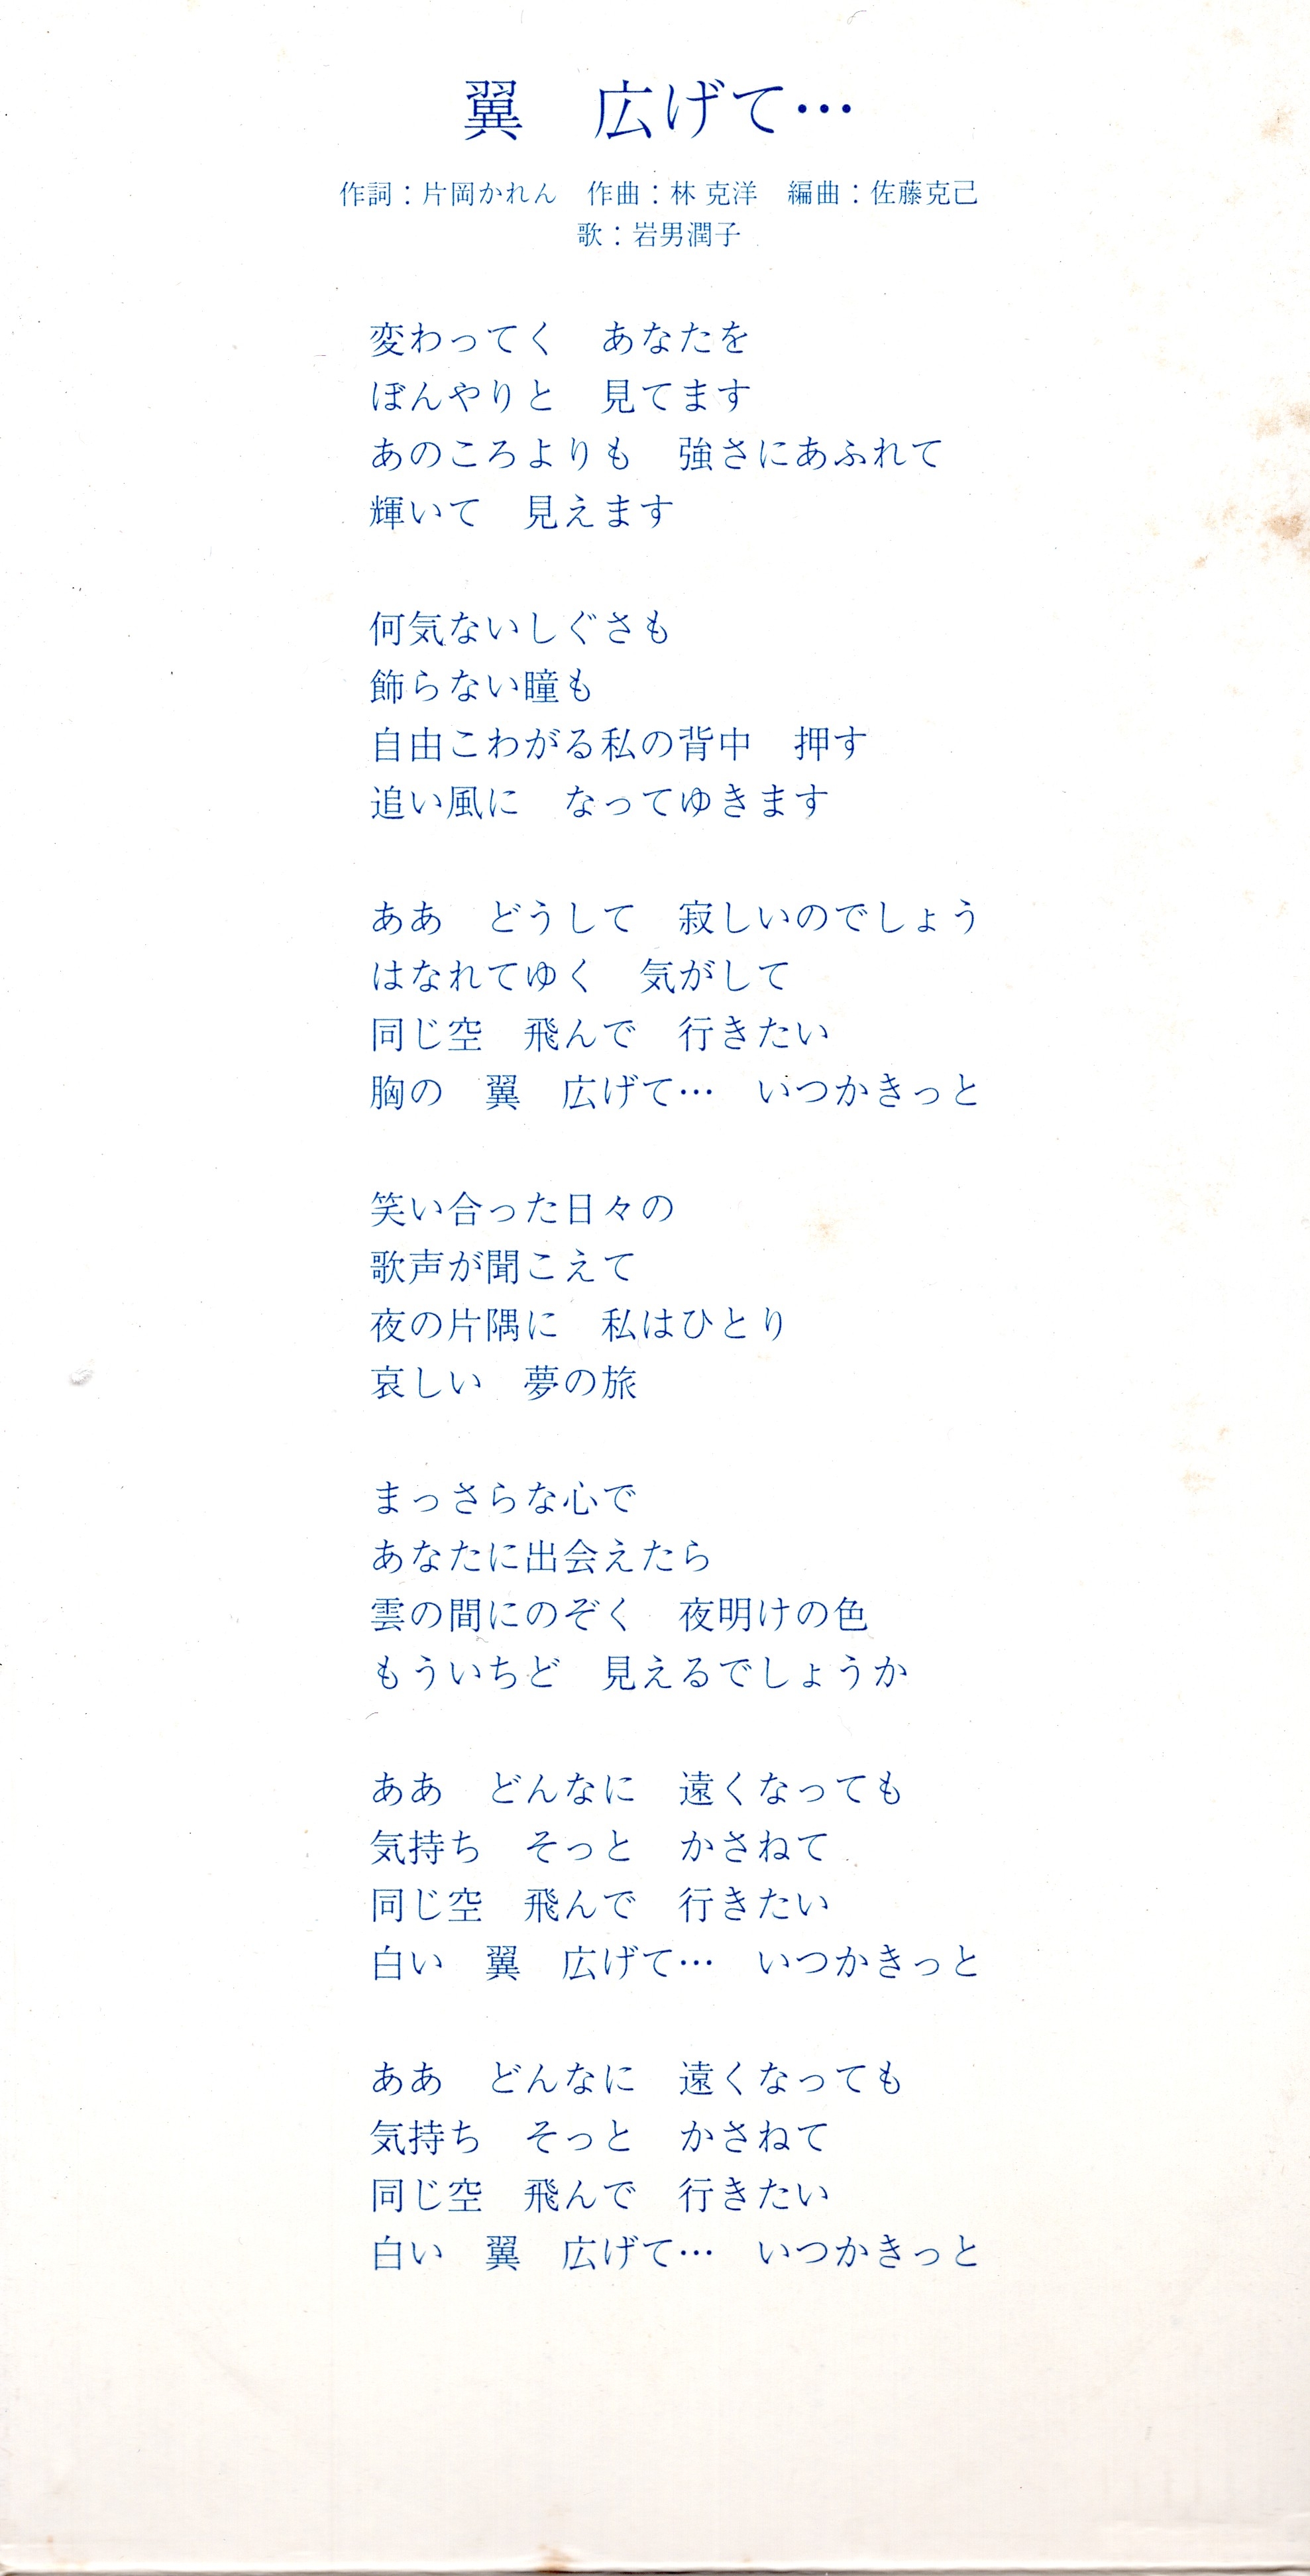 翼　広げて…
作詞：片岡かれん　作曲：林 克洋　編曲：佐藤克己
歌：岩男潤子
変わってく　あなたを
ぼんやりと　見てます
あのころよりも　強さにあふれて
輝いて　見えます
何気ないしぐさも
飾らない瞳も
自由こわがる私の背中　押す
追い風に　なってゆきます
ああ　どうして　寂しいのでしょう
はなれてゆく　気がして
同じ空　飛んで　行きたい
胸の　翼　広げて…　いつかきっと
笑い合った日々の
歌声が聞こえて
夜の片隅に　私はひとり
哀しい　夢の旅
まっさらな心で
あなたに出会えたら
雲の間にのぞく　夜明けの色
もういちど　見えるでしょうか
ああ　どんなに　遠くなっても
気持ち　そっと　かさねて
同じ空　飛んで　行きたい
白い　翼　広げて…　いつかきっと
ああ　どんなに　遠くなっても
気持ち　そっと　かさねて
同じ空　飛んで　行きたい
白い　翼　広げて…　いつかきっと